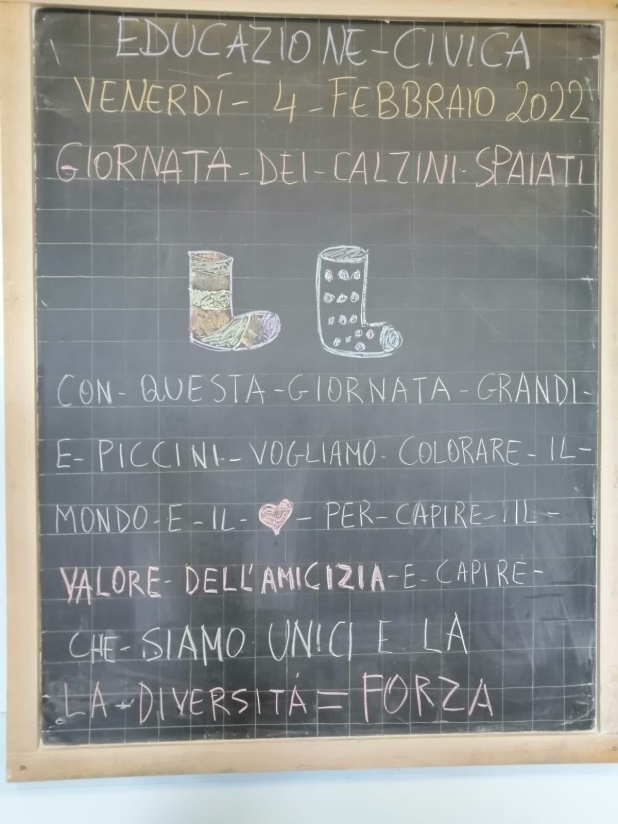 EDUCAZIONE-CIVICA
VENERDÍ- 4 -FEBBRAIO 2022
GIORNATA-DEI-CALZINI-SPAIATI
CON-QUESTA-GIORNATA-GRANDI-
E-PICCINI-VOGLIAMO-COLORARE-IL-
MONDO-E-IL-♥-PER-CAPIRE-IL-
VALORE-DELL'AMICIZIA-E-CAPIRE-
CHE-SIAMO UNICI E LA
LA-DIVERSITÁ=FORZA